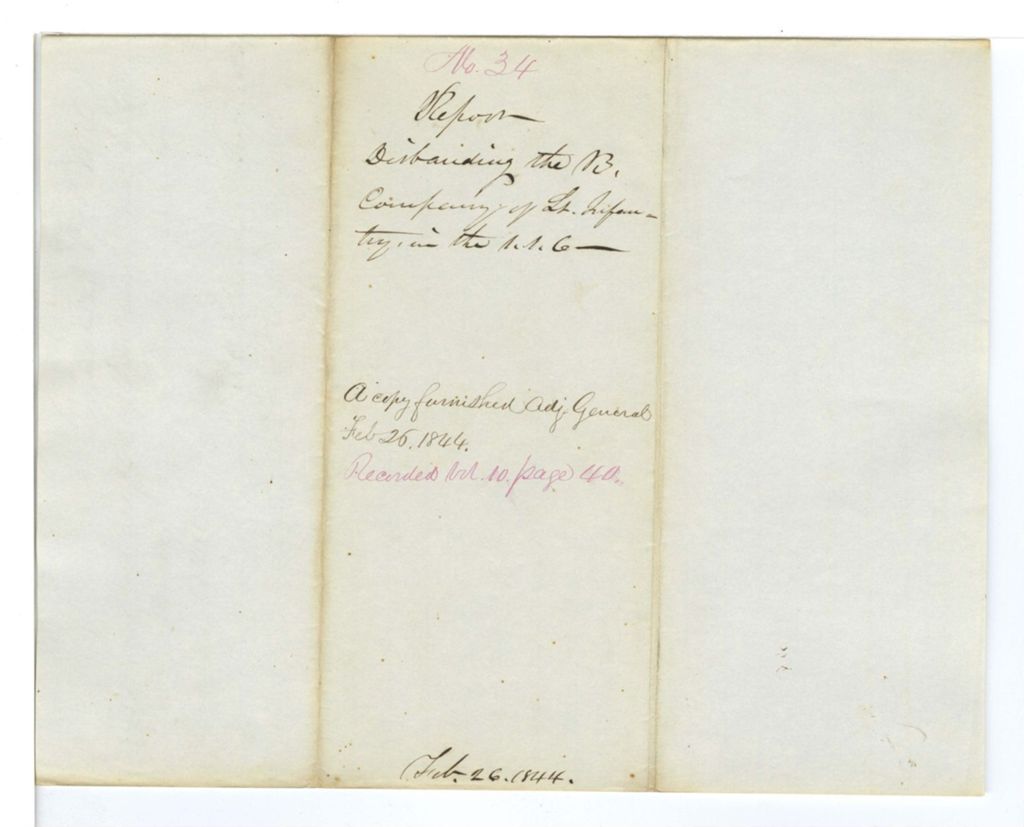 No. 34
Report
Disbanding the B.
Company of Lt. Infan-
try, in the 1.1.6
A copy furnished Adj. General
Feb 26. 1844.
Recorded Vol. 10. page 40.
Feb. 26. 1844.